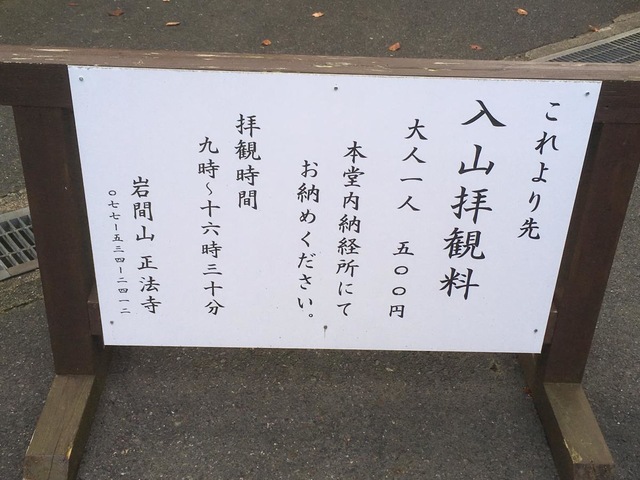 これより先
入山拝観料
大人一人 五〇〇円
本堂内納経所にて
お納めください。
拝観時間
九時～十六時三十分
岩間山 正法寺
〇七七ー五三四ー二四一二